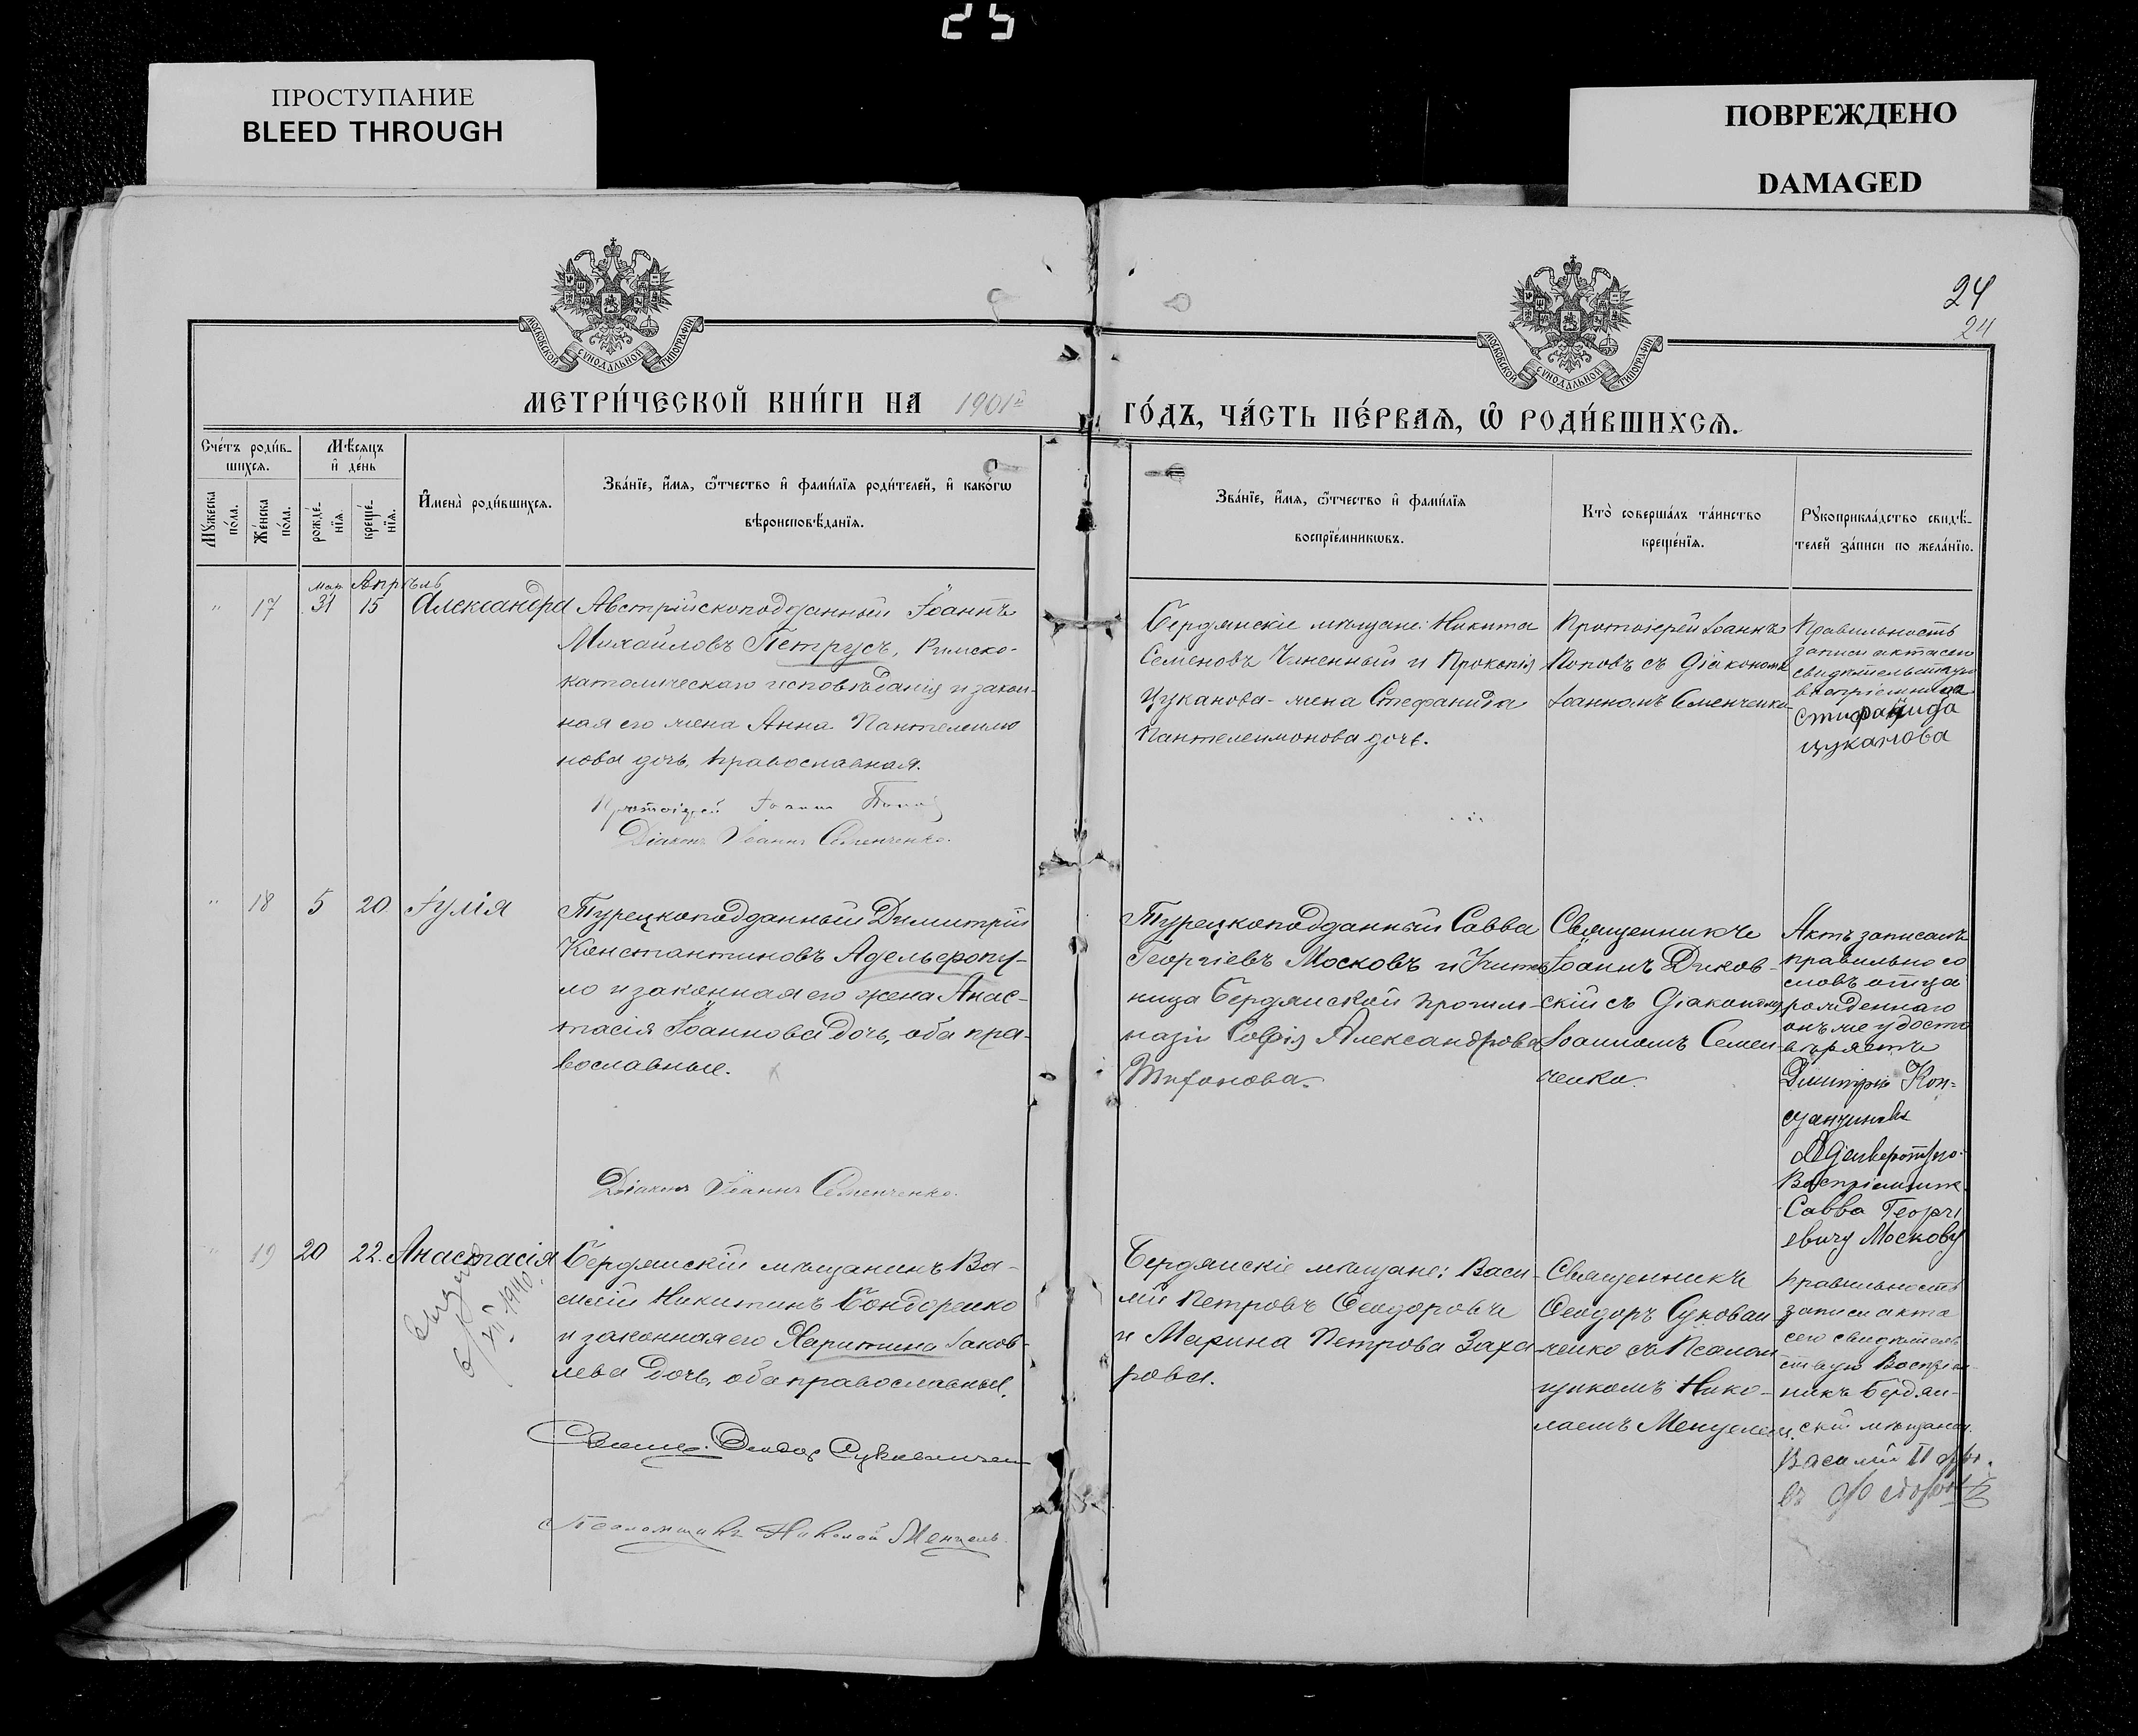 25
ПРОСТУПАНИЕ
BLEED THROUGH
ПОВРЕЖДЕНО
DAMAGED
24
24
МОСКОВСКОЙ СѴНОДАЛЬНОЙ ТИПОГРАФІИ
МОСКОВСКОЙ СѴНОДАЛЬНОЙ ТИПОГРАФІИ
МЕТРИ́ЧЕСКОЙ КНИ́ГИ НА 1901й
ГО́ДЪ, ЧА́СТЬ ПЕ́РВАѦ, Ѡ РОДИ́ВШИХСѦ.
Сче́тъ роди́в-
шихсѧ.
Мꙋжеска
по́ла.
Же́нска
по́ла.
Мѣ́сѧцъ
и҆ де́нь
рожде́-
нїѧ.
креще́-
нїѧ.
И҆мена̀ роди́вшихсѧ.
Зва́нїе, и҆́мѧ, ѻ҆́тчество и҆ фами́лїѧ роди́телей, и҆ како́гѡ
вѣроисповѣ́данїѧ.
Зва́нїе, и҆́мѧ, ѻ҆́тчество и҆ фами́лїѧ
воспрїе́мникѡвъ.
Кто̀ соверша́лъ та́инство
креще́нїѧ.
Рꙋкоприкла́дство свидѣ́-
телей за́писи по жела́нїю.
Мар. Апрѣль
" 17 31 15 Александра
Австрійскоподданный Іоаннъ
Михайловъ Петрусъ, Римско-
католическаго исповѣданія и закон-
ная его жена Анна Пантелеимо
нова дочь, православная.
Протоіерей Іоаннъ Поповъ
Діаконъ Іоаннъ Семенченко.
Бердянскіе мѣщане: Никита
Семеновъ и Прокопія
Цуканова - жена Стефанида
Пантелеимонова дочь.
Протоіерей Іоаннъ
Поповъ съ Діакономъ
Іоанномъ Семенченко
Правильность
записи акта сего
свидѣтельствую
воспріемница
Стифанида
Цуканова
" 18 5 20 Іулія
Турецкоподданный Димитрій
Константиновъ Адельеропу-
ло и законная его жена Анас-
тасія Іоаннова дочь, оба пра-
вославные.
Діаконъ Іоаннъ Семенченко.
Турецкоподданный Савва
Георгіевъ Московъ и Учитель
ница Бердянской прогим-
назіи Софія Александрова
Тифонова.
Священникъ
Іоаннъ Диков-
скій съ Діакономъ
Іоанномъ Семен-
ченко.
Актъ записанъ
правильно со
словъ отца
рожденнаго
онъ же удосто
вѣряетъ
Димитрій Кон-
Воспріемник
Савва Георгі
евичу Москову
" 19 20 22. Анастасія
VII 1940
Бердянскій мѣщанинъ Ва-
силій Никитинъ Бондаренко
и законная его Харитина Іаков-
лева дочь, оба православные.
Свящ. Ѳеодоръ Сукованченко
Псаломщикъ Николай Менцель
Бердянскіе мѣщане: Васи-
лій Петровъ Ѳеодоровъ
и Марина Петрова Заха-
рова.
Священникъ
Ѳеодоръ Сукован-
ченко съ Псалом
щикомъ Нико-
лаемъ Менцелем.
Правильность
записи акта
сего свидѣтель
ствую Воспріем-
никъ Бердян-
скій мѣщанин.
Василій